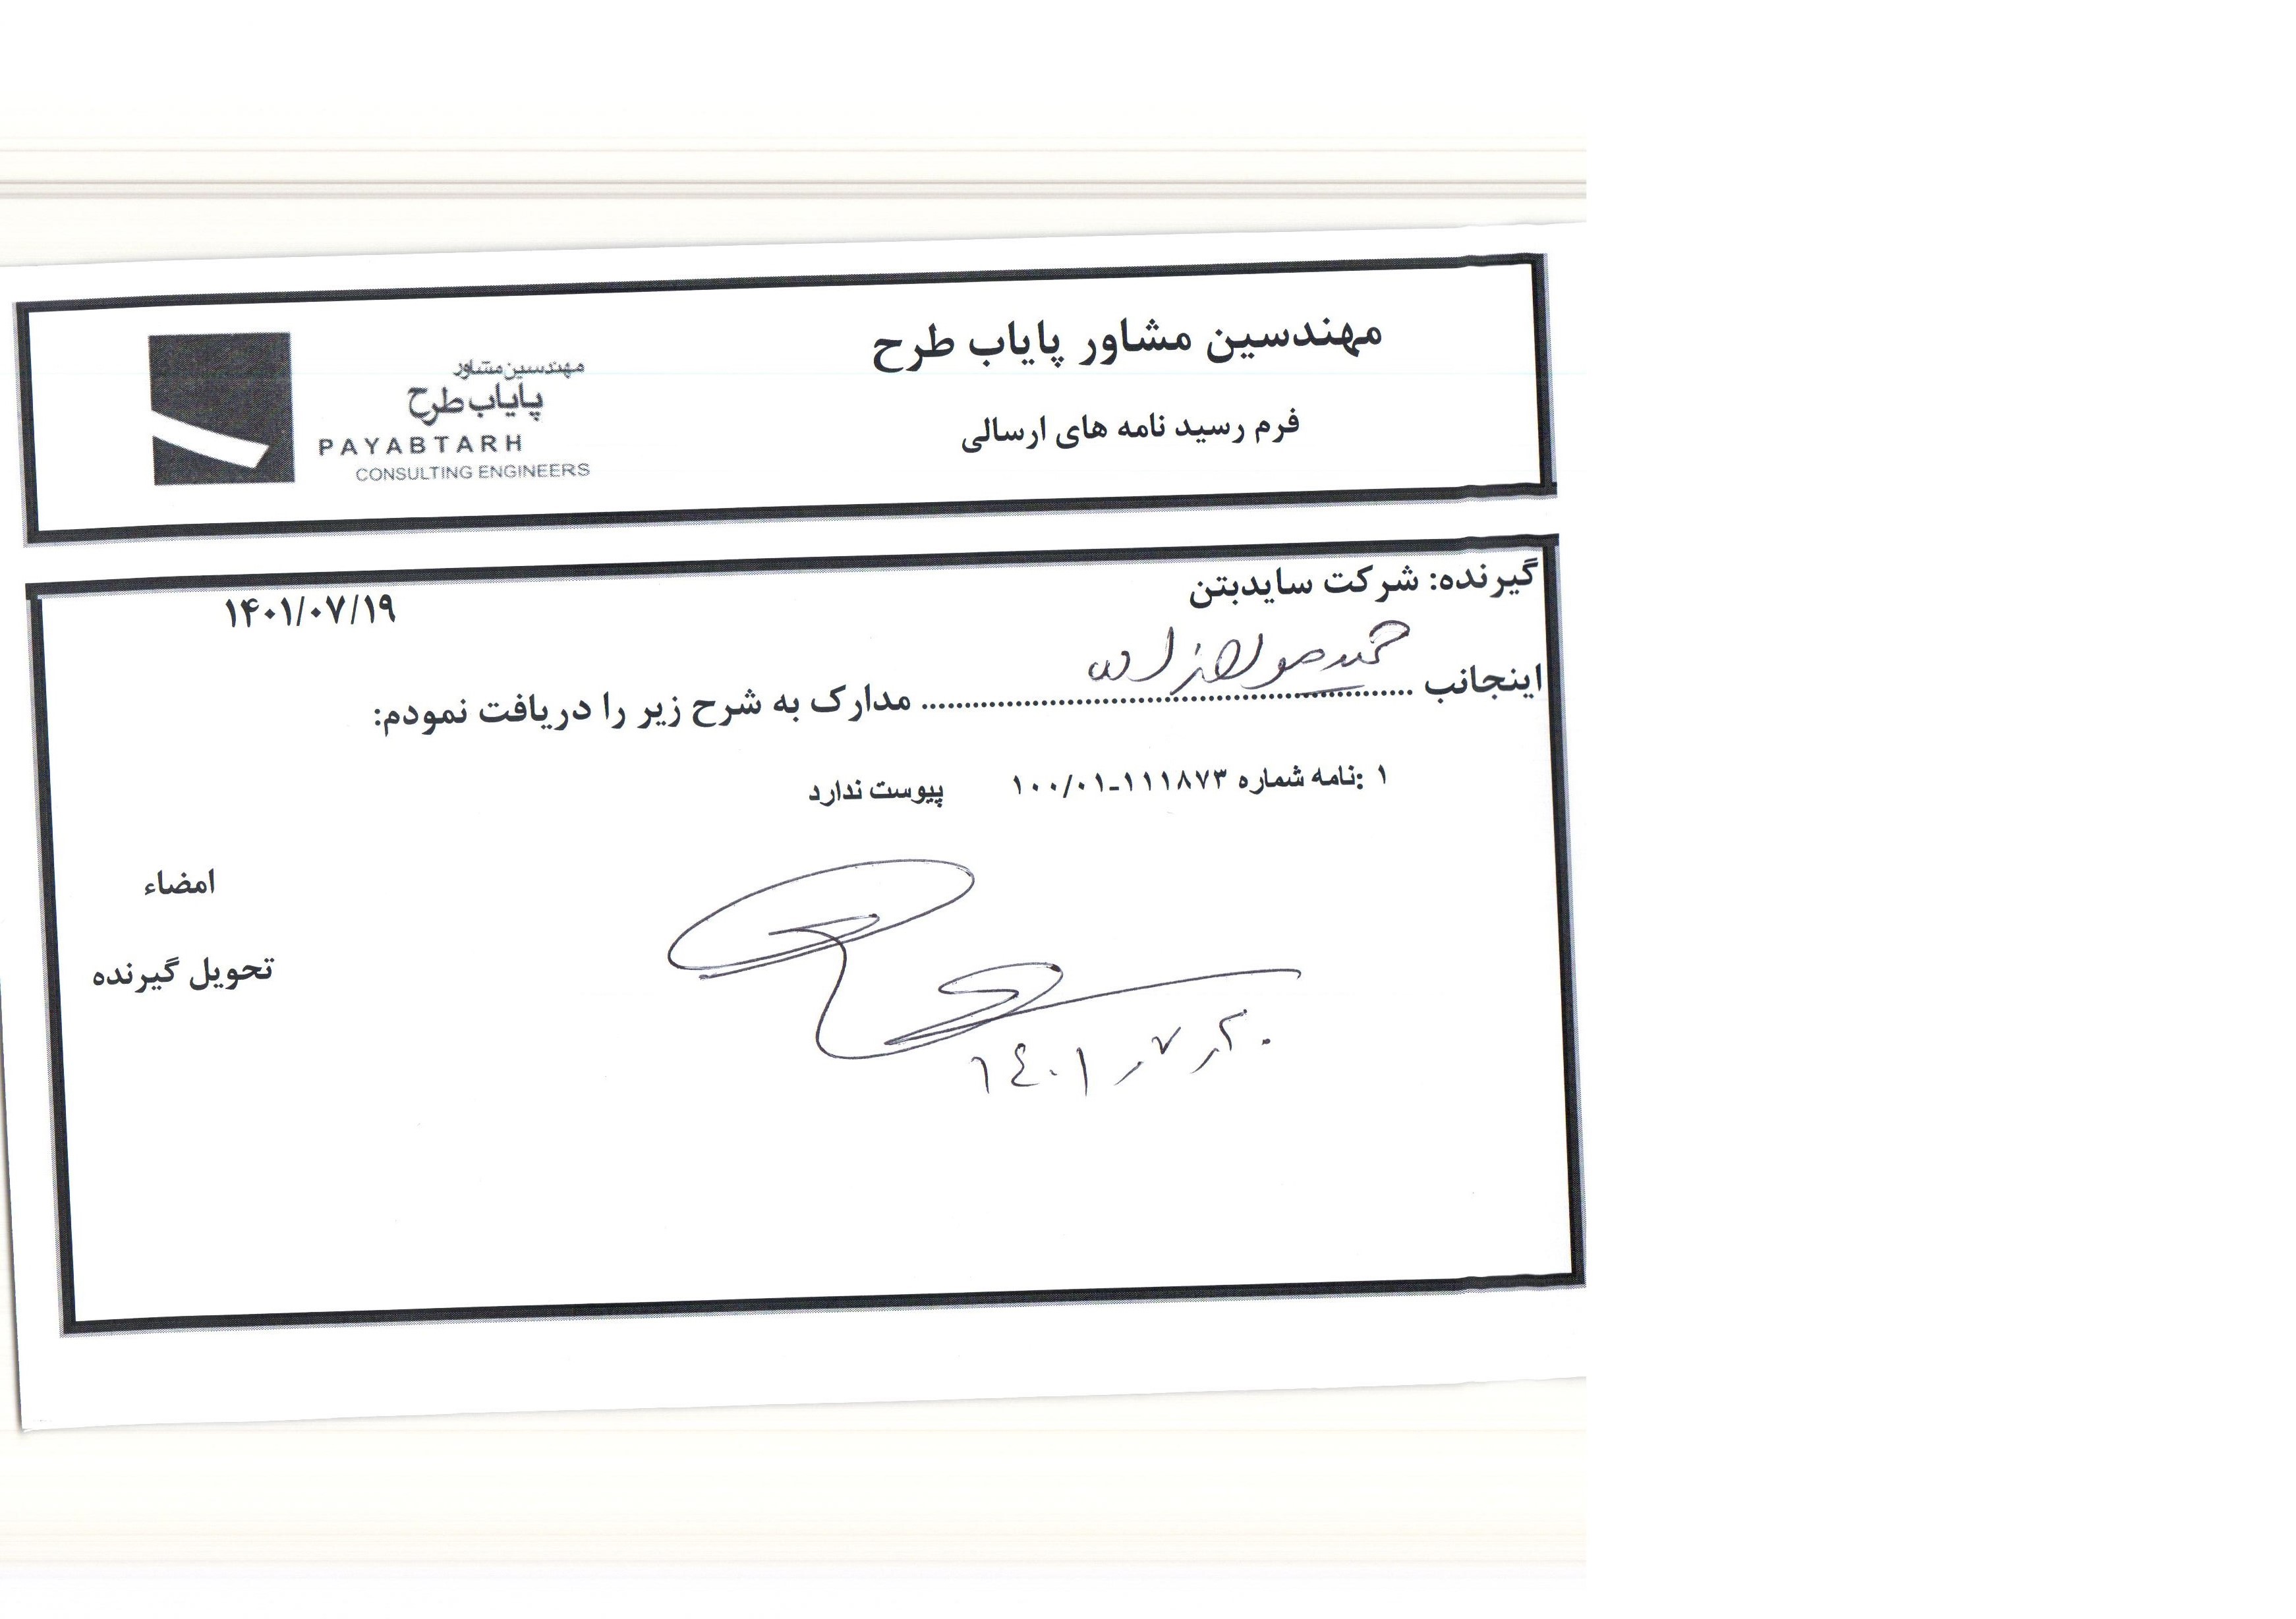 مهندسین مشاور پایاب طرح
فرم رسید نامه های ارسالی
مهندسین مشاور
پایاب طرح
PAYABTARH
CONSULTING ENGINEERS
گیرنده: شرکت سایدبتن
۱۴۰۱/۰۷/۱۹
اینجانب حمید ........................................................ مدارک به شرح زیر را دریافت نمودم:
۱ :نامه شماره ۱۱۱۸۷۳-۱۰۰/۰۱ پیوست ندارد
امضاء
تحویل گیرنده
۱۴۰۱ ر ۷ ر ۲۰